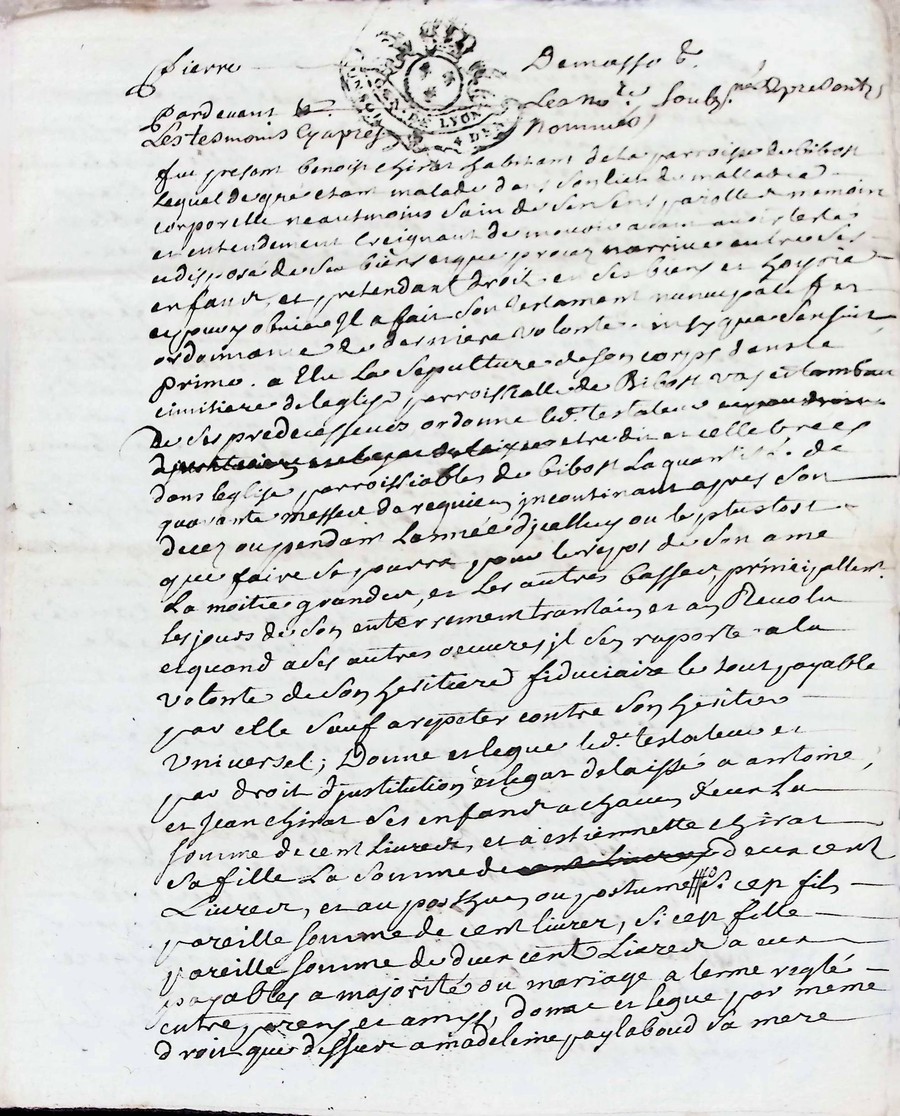 Pierre Demasso &.
Pardevant Le No.re soubs.né & presents
Les tesmoins Cyapres Nommés
fut present benoist chirat habitant de la parroisse de bibost
Lequel de gré etant malade dans son lict de malladie
corporelle neautmoins sain de ses sens parolle memoire
et entendement Creignant de mourir avant avoir testé
et disposé de ses biens et que proces n'arrive entre ses
enfants et pretendant droit en ses biens et hoyrie
et pour y obvier Il a fait son testament nuncupatif et
ordonnance de derniere volonte insy que sensuit
primo. a Elu La sepulture de son corps dans le
cimitiere de leglise parroissialle de Bibost vas et tombeau
de ses predecesseurs ordonne led. testateur
etre dit et cellebrees
dans leglise parroissiables de bibost La quantité de
quarante messes de requiem incontinant apres son
decez ou pendant Lannée djcelluy ou le plustost
que faire se pourra pour le repos de son ame
La moitié grandes, et Les autres basses, principallem.t
les jours de son enterrement trantain et an Revolu
et quand a ses autres oeuvres jl s'en raporte a la
volonte de son heritiere fiduciaire le tout payable
par elle sauf a repeter contre son heritier
Universel; Donne et legue led. testateur et
par droit d'jnstitution et legat delaissé a antoine,
et Jean chirat ses enfants a chacun deux La
somme de cent Livres, et a estiennette chirat
sa fille La somme de cent Livres deux cent
Livres, et au posthume ou postume si cest fils
pareille somme de cent livres, si cest fille
pareille somme de deux cent Livres a eux
payables a majorité ou mariage a terme reglé
entre parens et amys, donne et legue par meme
droit que dessus a madeleine paylaboud sa mere